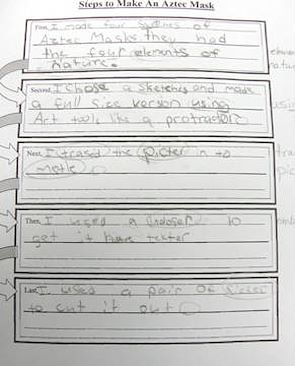 Steps to Make An Aztec Mask
First, I made four sketches of
Aztec Masks they had
the four elements of
Nature.
Second, I chose a sketches and made
a full size verson using
Art tools like a protractor
Next, I trased the picter n to
Then, I used a to
get it texter
Last, I used a pair of
to cut it out